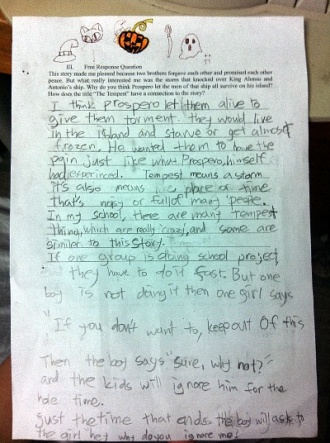 III. Free Response Question
This story made me pleased because two brothers forgave each other and promised each other
peace. But what really interested me was the storm that knocked over King Alonso and
Antonio's ship. Why do you think Prospero let the men of that ship all survive on his island?
How does the title "The Tempest" have a connection to the story?
I think prospero let them alive to
give them torment. they would live
in the island and starve or get almost
frozen. He wanted them to have the
pain just like what Prospero himself
had experienced. Tempest means a storm
It's also means place or time
that's noisy or full of many people.
In my school, there are many tempest
thing, which are really 'crazy', and some are
similar to this story.
If one group is doing school project,
they have to do it fast. But one
boy is not doing it then one girl says
"If you don't want to, keep out of this
Then the boy says "sure, why not?"
and the kids will ignore him for the
hole time.
Just the time that ends the boy will ask to
the girl hey why do you ignore me?